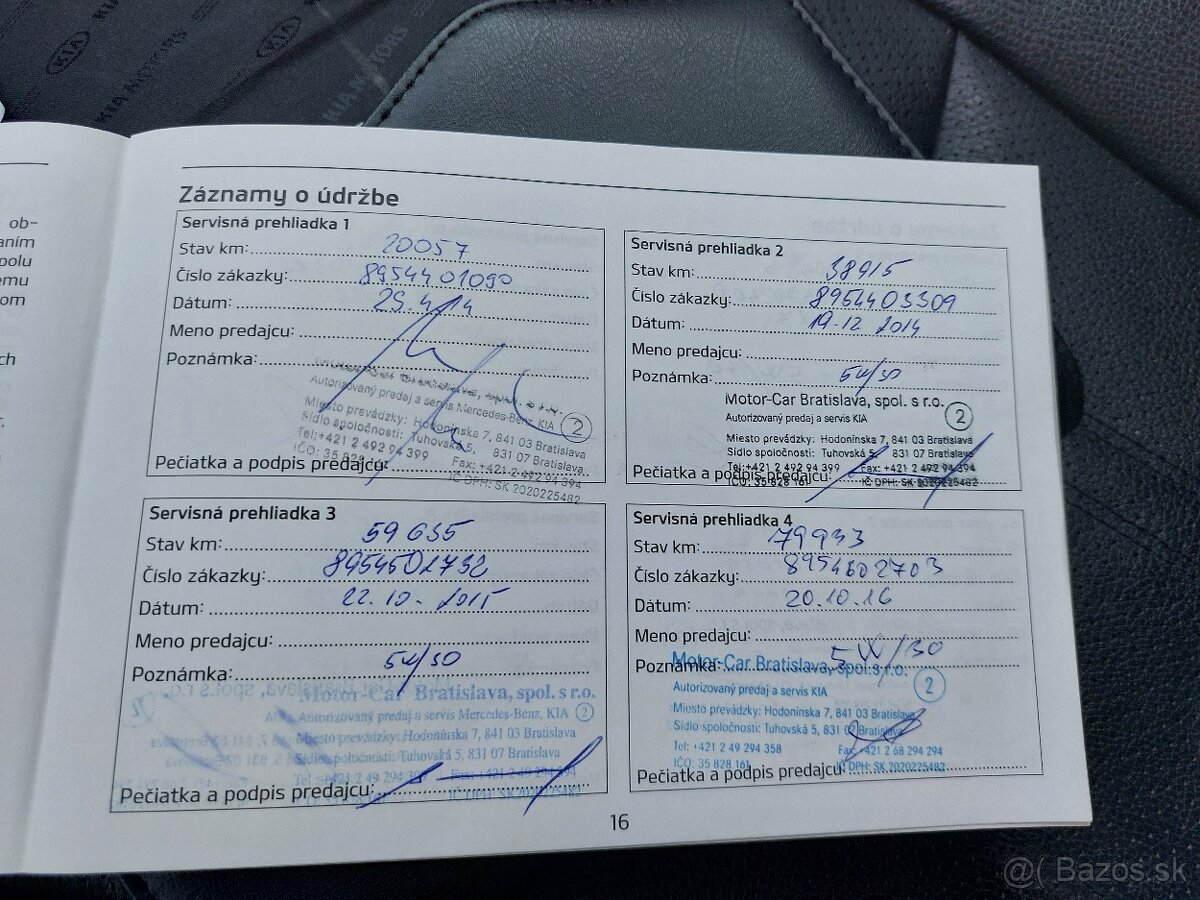 KIA
KIA MOTORS
KIA
KIA MOTORS
ob-
aním
polu
emu
om
ch
Záznamy o údržbe
Servisná prehliadka 1
Stav km: 20057
Číslo zákazky: 8954401090
Dátum: 25.4.14
Meno predajcu:
Poznámka:
Autorizovaný predaj a servis Mercedes-Benz, KIA 2
Miesto prevádzky: Hodonínska 7, 841 03 Bratislava
Sídlo spoločnosti: Tuhovská 5, 831 07 Bratislava
Tel:+421 2 492 94 399 Fax: +421 2 492 94 394
IČO: 35 828 161 IČ DPH: SK 2020225482
Pečiatka a podpis predajcu:
Servisná prehliadka 2
Stav km: 38915
Číslo zákazky: 8954403309
Dátum: 19.12 2014
Meno predajcu:
Poznámka: 5W/30
Motor-Car Bratislava, spol. s r.o.
Autorizovaný predaj a servis KIA 2
Miesto prevádzky: Hodonínska 7, 841 03 Bratislava
Sídlo spoločnosti: Tuhovská 5, 831 07 Bratislava
Tel:+421 2 492 94 399 Fax: +421 2 492 94 394
IČO: 35 828 161 IČ DPH: SK 2020225482
Pečiatka a podpis predajcu:
Servisná prehliadka 3
Stav km: 59635
Číslo zákazky: 8954501732
Dátum: 22.10.2015
Meno predajcu:
Poznámka: 5W/30
Motor-Car Bratislava, spol. s r.o.
Autorizovaný predaj a servis Mercedes-Benz, KIA 2
Miesto prevádzky: Hodonínska 7, 841 03 Bratislava
Sídlo spoločnosti: Tuhovská 5, 831 07 Bratislava
Pečiatka a podpis predajcu:
Servisná prehliadka 4
Stav km: 79933
Číslo zákazky: 8954602703
Dátum: 20.10.16
Meno predajcu:
Poznámka: 5W/30
Motor-Car Bratislava, spol. s r.o.
Autorizovaný predaj a servis KIA 2
Miesto prevádzky: Hodonínska 7, 841 03 Bratislava
Sídlo spoločnosti: Tuhovská 5, 831 07 Bratislava
Tel: +421 2 49 294 358 Fax: +421 2 68 294 294
IČO: 35 828 161 IČ DPH: SK 2020225482
Pečiatka a podpis predajcu:
16
@( Bazos.sk